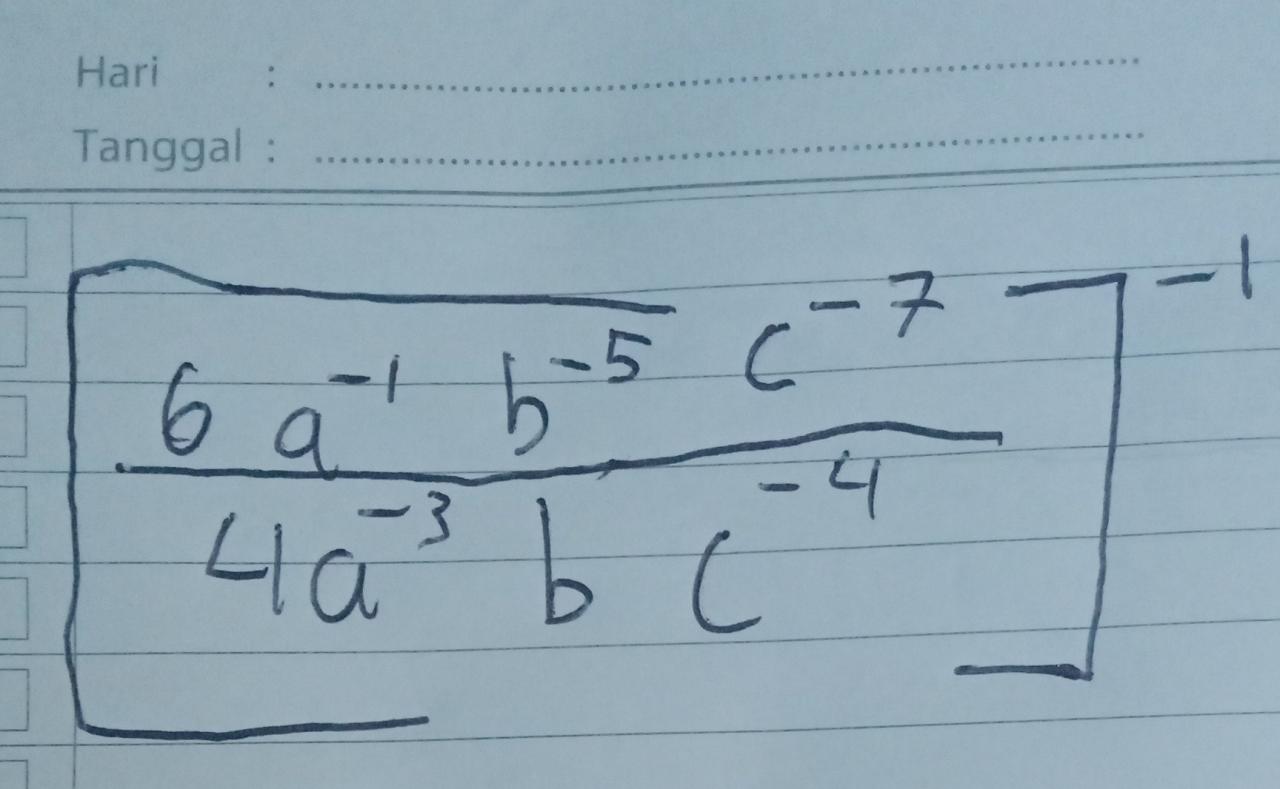 Hari :
Tanggal :
[6 a⁻¹ b⁻⁵ c⁻⁷
4a⁻³ b c⁻⁴]⁻¹